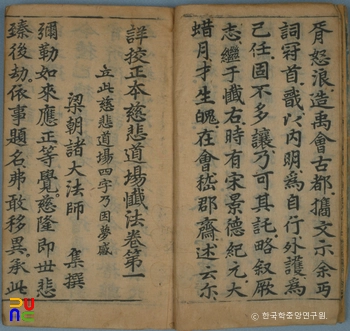 胥怒浪造禹會古都攟文示余丐
詞冠首戩以内明爲自行外護爲
己任固不多讓乃可其託略叙厥
志繼于懺右時有宋景德紀元大
蜡月才生魄在會嵇郡齋述云尔
詳校正本慈悲道場懺法卷第一
立此慈悲道場四字乃因夢感
梁朝諸大法師 集撰
彌勒如來應正等覺慈隆即世悲
臻後劫依事題名弗敢移異承此
© 한국학중앙연구원